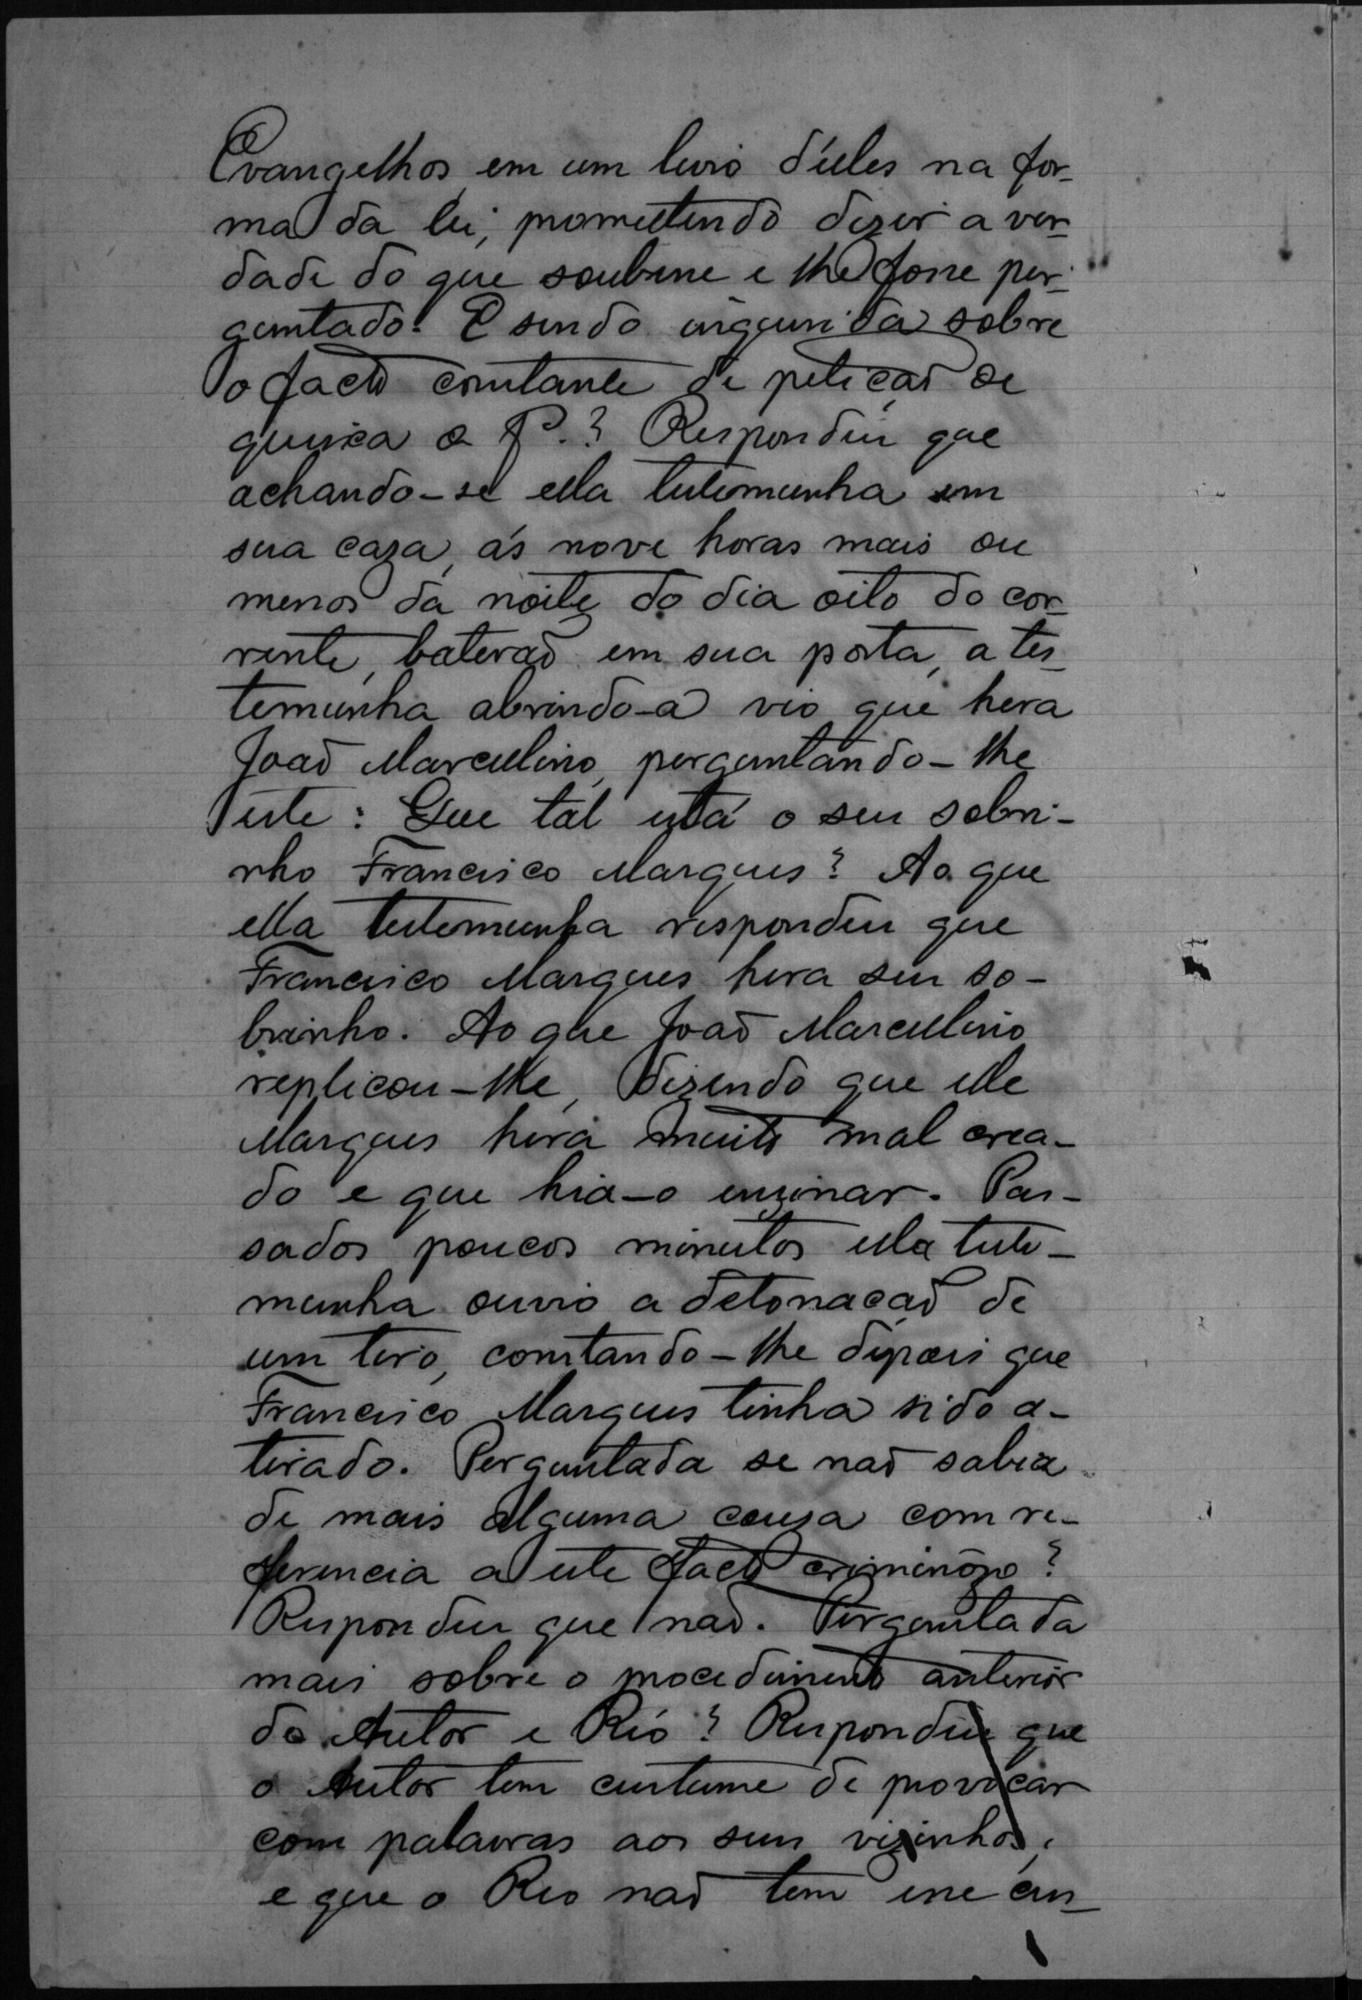 Evangelhos em um livro d'elles na for-
ma da lei, promettendo dizer a ver-
dade do que soubesse e lhe fosse per-
guntado. E sendo inquirida sobre
o facto constante de petição de
queixa a f P.? Respondeu que
achando-se ella testemunha em
sua caza, ás nove horas mais ou
menos da noite do dia oito do cor-
rente, baterão em sua porta, a tes-
temunha abrindo-a vio que hera
João Marcellino, perguntando-lhe
este: Que tal está o seu sobri-
nho Francisco Marques? Ao que
ella testemunha respondeu que
Francisco Marques hera seu so-
brinho. Ao que João Marcellino
replicou-lhe, dizendo que elle
Marques hera muito mal crea-
do e que hia-o enzinar. Pas-
sados poucos minutos ella teste-
munha ouvio a detonação de
um tiro, constando-lhe depois que
Francisco Marques tinha sido a-
tirado. Perguntada se não sabia
de mais alguma couza com re-
ferencia a este facto criminôzo?
Respondeu que não. Perguntada
mais sobre o procedimento anterior
do Autor e Réo? Respondeu que
o Autor tem custume de provocar
com palavras aos seus vizinhos,
e que o Reo não tem esse cus-